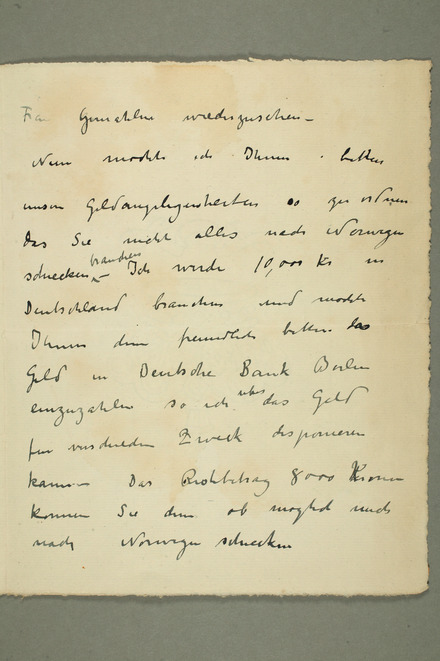 Frau Gemahlin wiederzusehen –
Nun mochte ich Ihnen bitten
unsere Geldangelegenheiten so zu ordnen
das Sie nicht alles nach Norwegen
schecken brauchen – Ich werde 10,000 Kr in
Deutschland brauchen und mochte
Ihnen dem freundlich bitten das
Geld in Deutsche Bank Berlin
einzuzahlen so ich uber das Geld
fur verschieden Zweck disponieren
kann – Das Restbetrag 8000 Kronen
konnen Sie dem ob moglich nach
nach Norwegen schecken